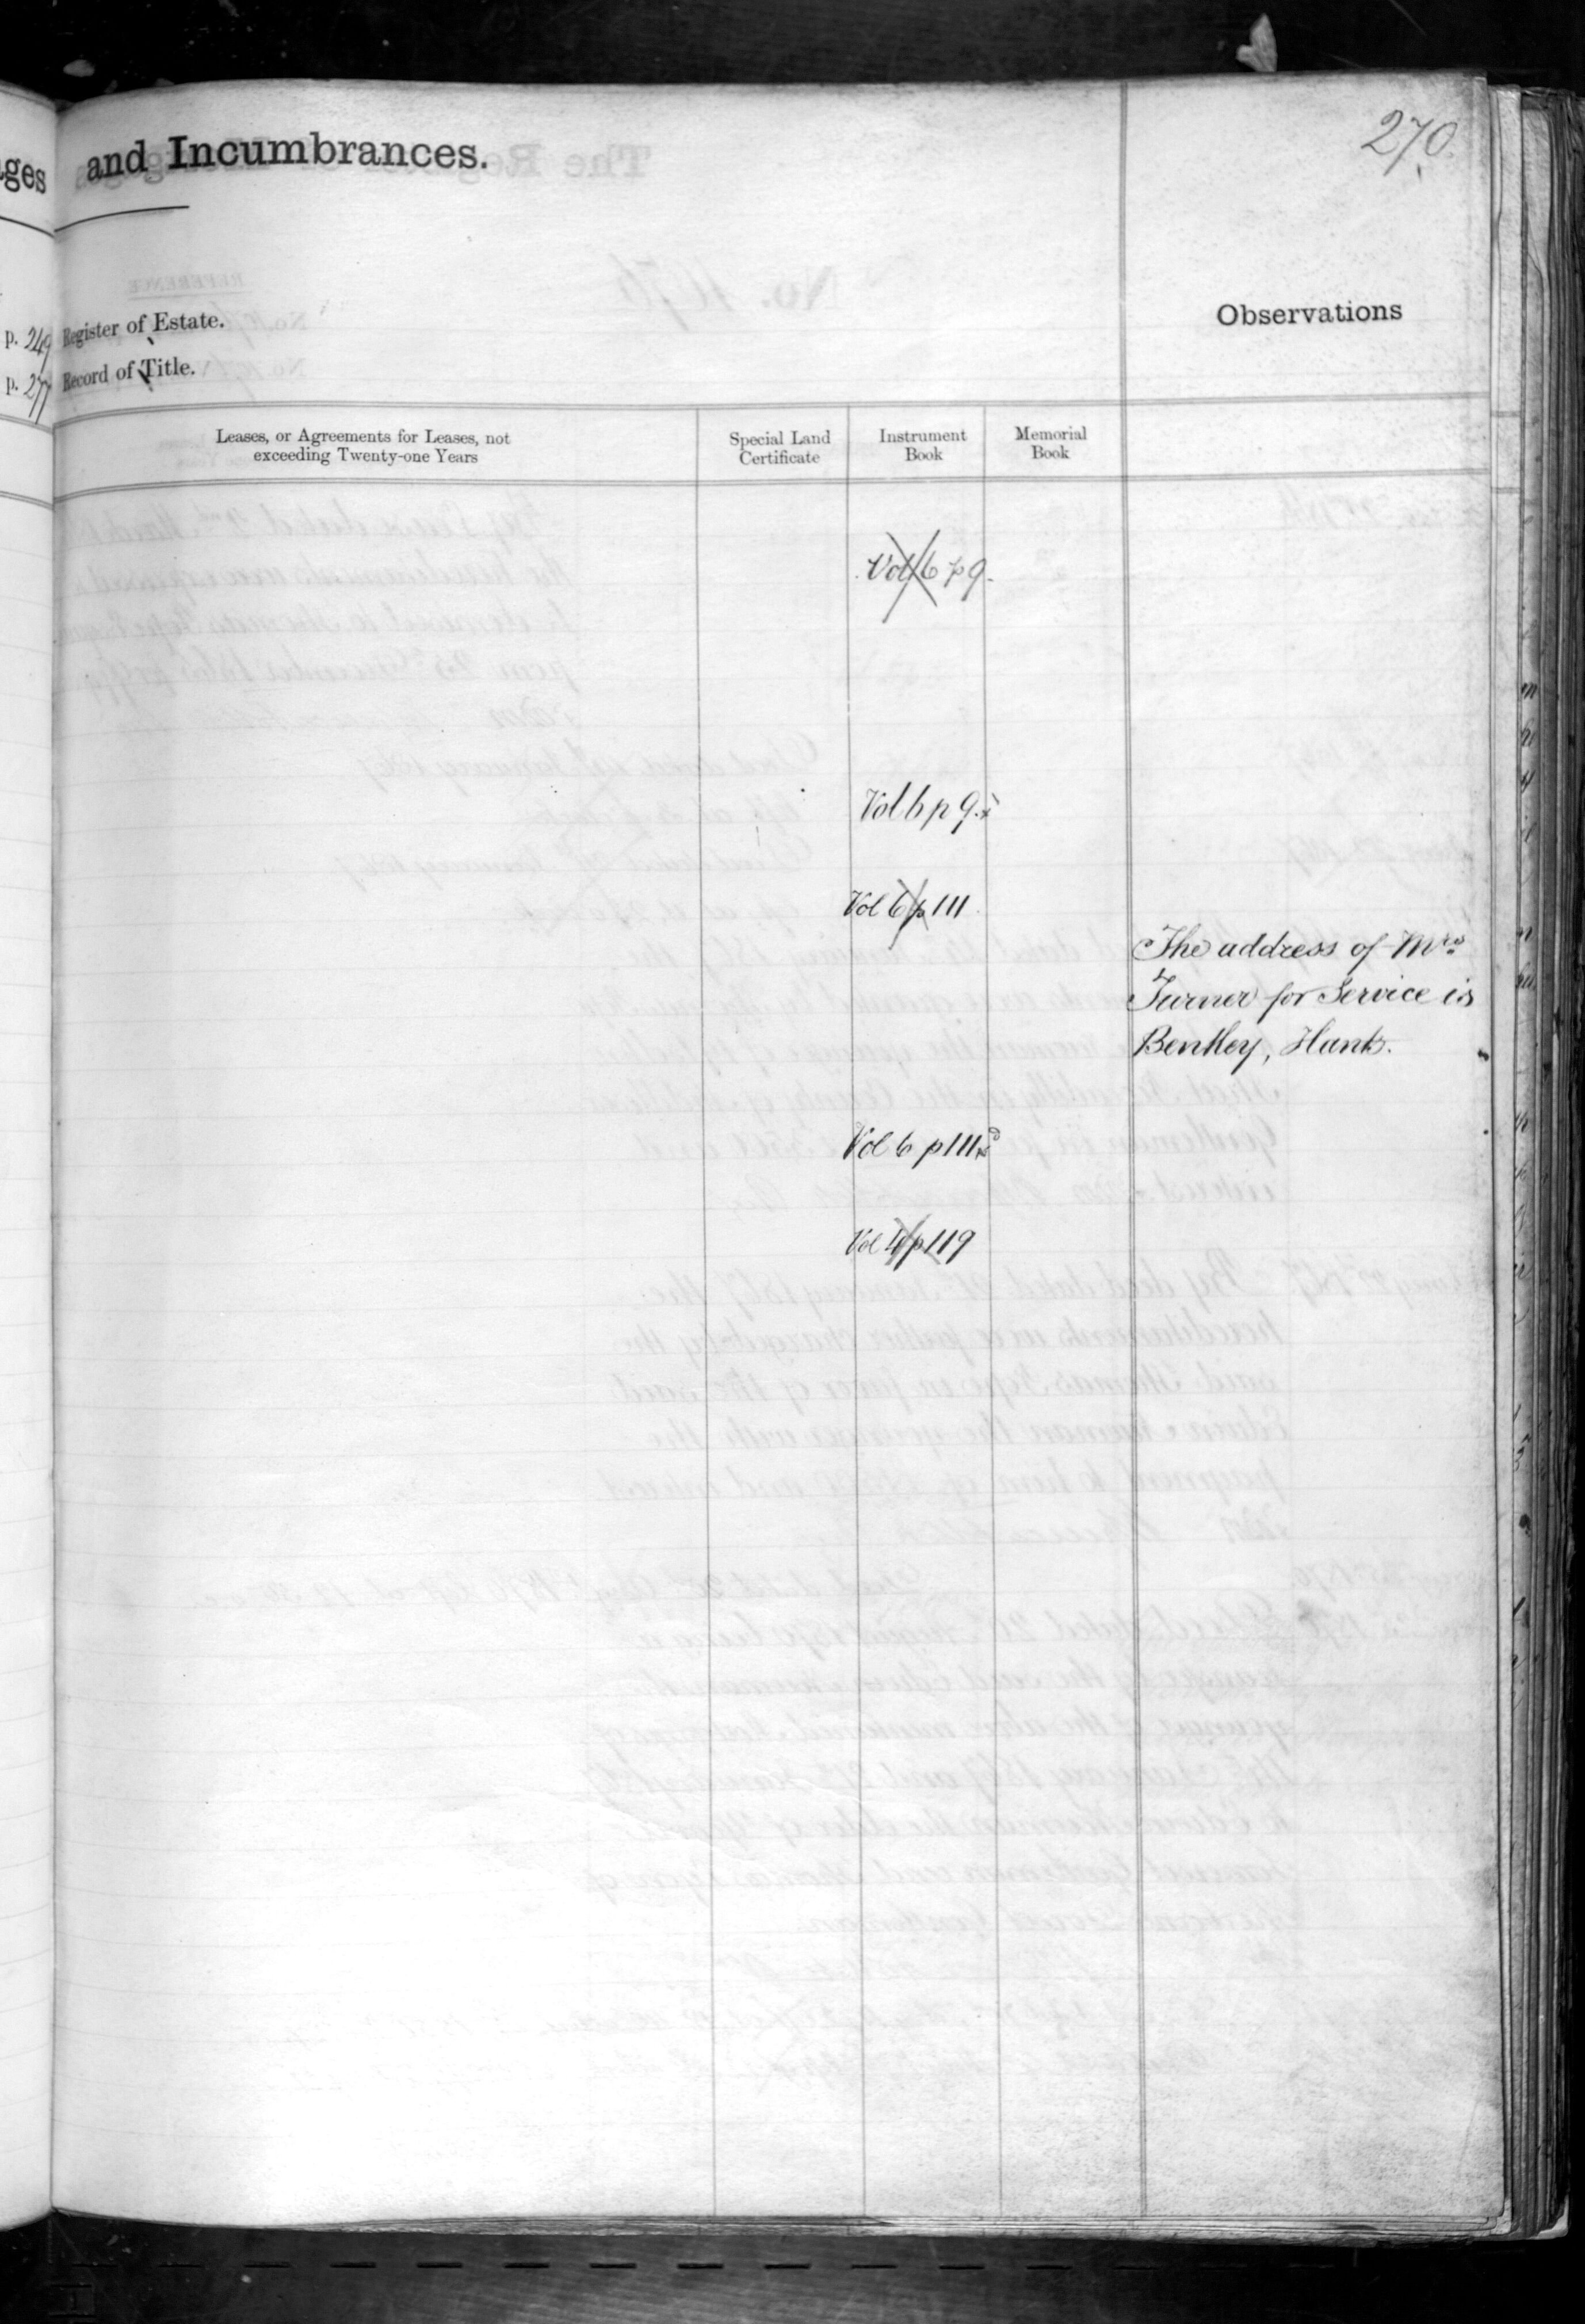 270
ges and Incumbrances.
Observations
p. 249 Register of Estate.
p. 277 Record of Title.
Leases, or Agreements for Leases, not
exceeding Twenty-one Years
Special Land
Certificate
Instrument
Book
Memorial
Book
Vol 6 p 9.
Vol 6 p 9.
Vol 6 p 111
The address of Mrs
Turner for Service is
Bentley, Hants.
Vol 6 p 111
Vol p 119